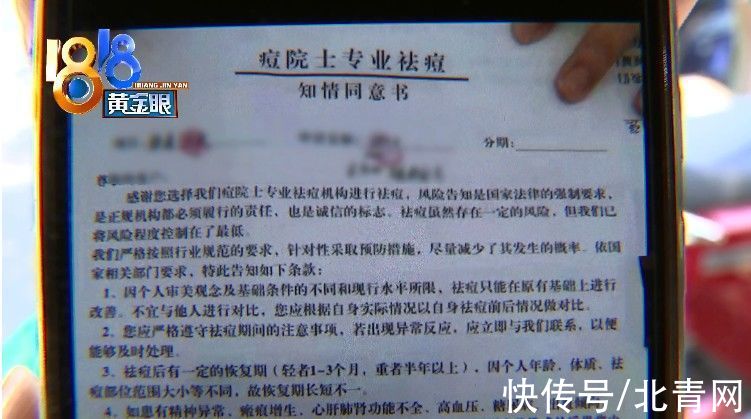 1818
HUANG JIN YAN
黄金眼
痘院士专业祛痘
知情同意书
分期:
感谢您选择我们痘院士专业祛痘机构进行祛痘，风险告知是国家法律的强制要求，
是正规机构都必须履行的责任、也是诚信的标志。祛痘虽然存在一定的风险，但我们已
将风险程度控制在了最低。
我们严格按照行业规范的要求，针对性采取预防措施，尽量减少了其发生的概率。依国
家相关部门要求，特此告知如下条款：
1、因个人审美观念及基础条件的不同和现行水平所限、祛痘只能在原有基础上进行
改善。不宜与他人进行对比，您应根据自身实际情况以自身祛痘前后情况做对比。
2、您应严格遵守祛痘期间的注意事项，若出现异常反应，应立即与我们联系，以便
能够及时处理。
3、祛痘后有一定的恢复期（轻者1-3个月，重者半年以上），因个人年龄、体质、祛
痘部位范围大小等不同，故恢复期长短不一。
4、如患有精神异常、瘢痕增生、心肝肺肾功能不全、高血压、糖
快传号/北青网